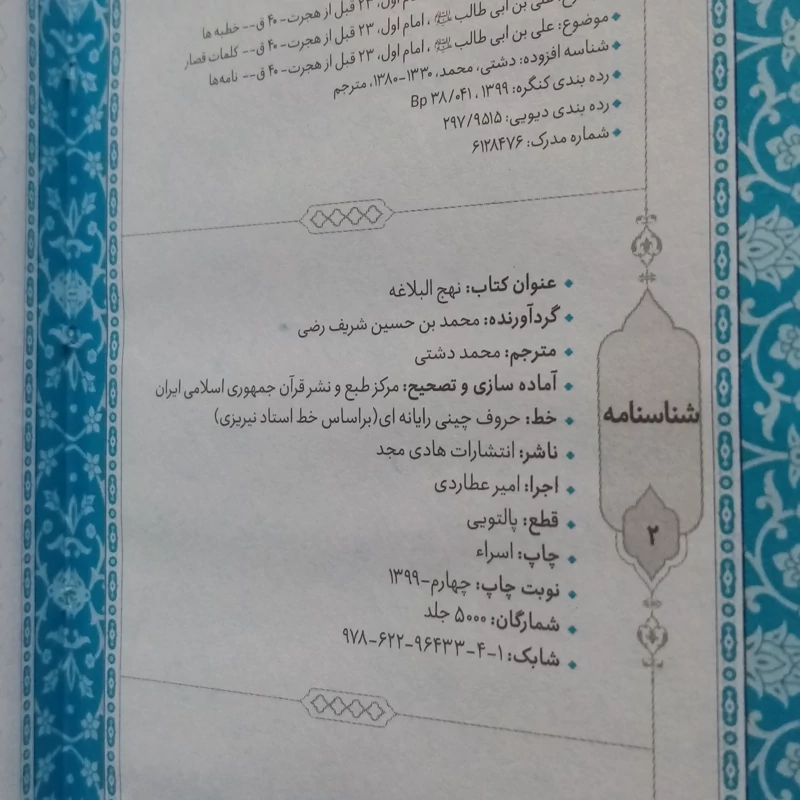 علی بن ابی طالب ﷷ، امام اول، ۲۳ قبل از هجرت- ۴۰ ق-- خطبه ها
موضوع: علی بن ابی طالب ﷷ، امام اول، ۲۳ قبل از هجرت- ۴۰ ق-- کلمات قصار
موضوع: علی بن ابی طالب ﷷ، امام اول، ۲۳ قبل از هجرت- ۴۰ ق-- نامه‌ها
شناسه افزوده: دشتی، محمد، ۱۳۳۰-۱۳۸۰، مترجم
رده بندی کنگره: ۱۳۹۹ ،Bp ۳۸/۰۴۱
رده بندی دیویی: ۲۹۷/۹۵۱۵
شماره مدرک: ۶۱۲۸۴۷۶
شناسنامه
۲
عنوان کتاب: نهج البلاغه
گردآورنده: محمد بن حسین شریف رضی
مترجم: محمد دشتی
آماده سازی و تصحیح: مرکز طبع و نشر قرآن جمهوری اسلامی ایران
خط: حروف چینی رایانه ای(براساس خط استاد نیریزی)
ناشر: انتشارات هادی مجد
اجرا: امیر عطاردی
قطع: پالتویی
چاپ: اسراء
نوبت چاپ: چهارم-۱۳۹۹
شمارگان: ۵۰۰۰ جلد
شابک: ۱-۴-۹۶۴۳۳-۶۲۲-۹۷۸